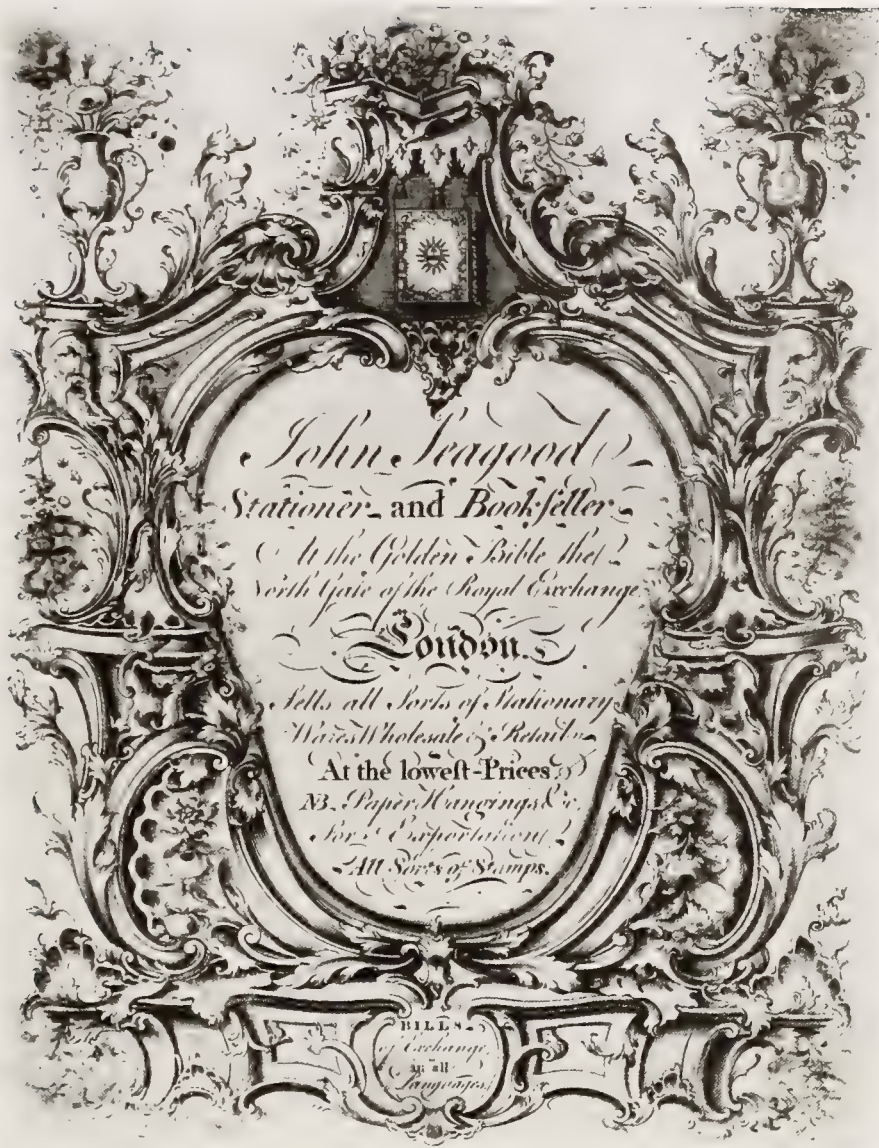 John Seagood
Stationer and Bookſeller
At the Golden Bible the
North Gate of the Royal Exchange
London.
Sells all Sorts of Stationary
Wares Wholesale & Retail
At the loweſt Prices
NB. Paper Hangings &c.
For Exportation
All Sorts of Stamps.
BILLS
of Exchange
in all
Languages